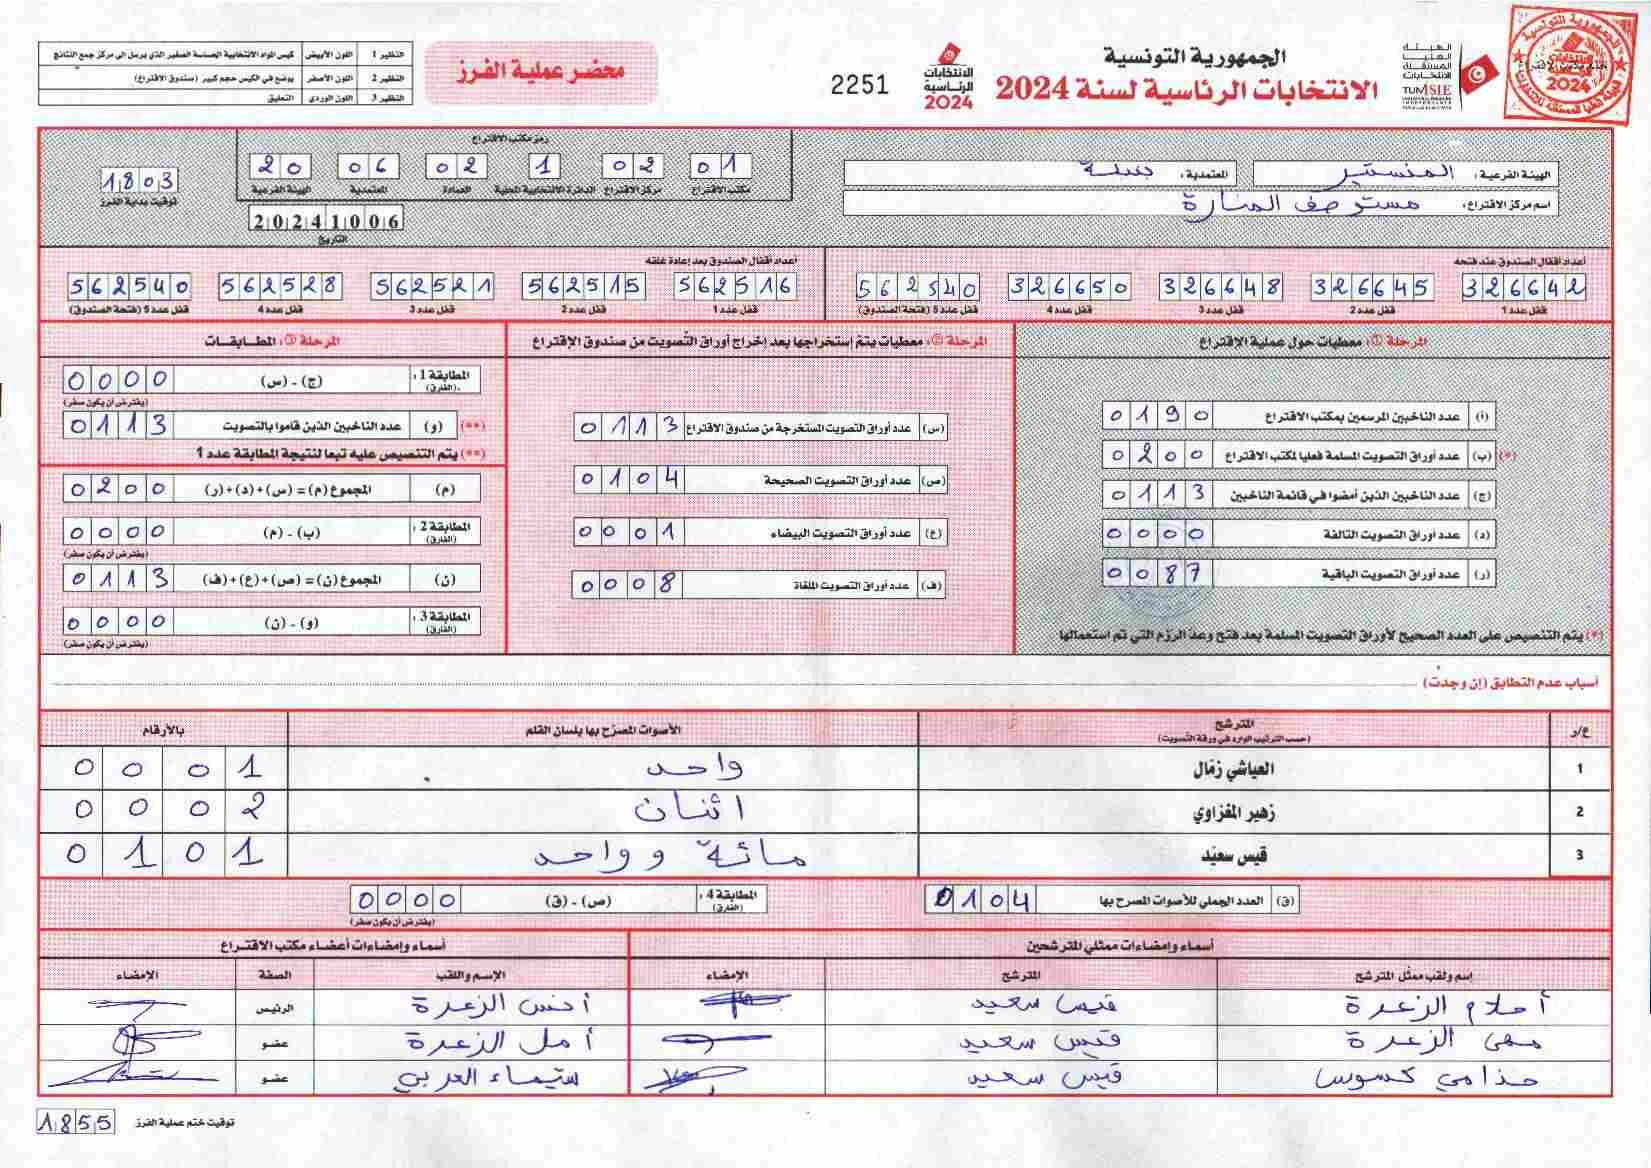 الجمهورية التونسية
الانتخابات الرئاسية لسنة 2024
الهيئة العليا المستقلة للانتخابات
TUNISIE
الانتخابات الرئاسية 2024
2251
محضر عملية الفرز
النظير 1 اللون الأبيض كيس المواد الانتخابية الحساسة الصغير الذي يرسل الى مركز جمع النتائج
النظير 2 اللون الأصفر يوضع في الكيس حجم كبير (صندوق الاقتراع)
النظير 3 اللون الوردي التعليق
الهيئة الفرعية: المنستير المعتمدية: جبيلة
اسم مركز الاقتراع: مستوصف المنارة
رمز مكتب الاقتراع
01 02 1 02 06 20
مكتب الاقتراع مركز الاقتراع الدائرة الانتخابية المحلية العمادة المعتمدية الهيئة الفرعية
20241006
التاريخ
1803
توقيت بداية الفرز
أعداد أقفال الصندوق عند فتحه
326642 326645 326648 326650 562540
قفل عدد 1 قفل عدد 2 قفل عدد 3 قفل عدد 4 قفل عدد 5 (فتحة الصندوق)
أعداد أقفال الصندوق بعد إعادة غلقه
562516 562515 562521 562528 562540
قفل عدد 1 قفل عدد 2 قفل عدد 3 قفل عدد 4 قفل عدد 5 (فتحة الصندوق)
المرحلة ①: معطيات حول عملية الاقتراع
(أ) عدد الناخبين المرسمين بمكتب الاقتراع 0190
(*) (ب) عدد أوراق التصويت المسلمة فعليا لمكتب الاقتراع 0200
(ج) عدد الناخبين الذين أمضوا في قائمة الناخبين 0113
(د) عدد أوراق التصويت التالفة 0000
(ر) عدد أوراق التصويت الباقية 0087
(*) يتم التنصيص على العدد الصحيح لأوراق التصويت المسلمة بعد فتح وعد الرزم التي تم استعمالها
المرحلة ②: معطيات يتم إستخراجها بعد إخراج أوراق التصويت من صندوق الإقتراع
(س) عدد أوراق التصويت المستخرجة من صندوق الاقتراع 0113
(ص) عدد أوراق التصويت الصحيحة 0104
(ع) عدد أوراق التصويت البيضاء 0001
(ف) عدد أوراق التصويت الملغاة 0008
المرحلة ③: المطابقات
المطابقة 1: (الفارق) (ج) - (س) 0000
(يفترض أن يكون صفر)
(**) (و) عدد الناخبين الذين قاموا بالتصويت 0113
(**) يتم التنصيص عليه تبعا لنتيجة المطابقة عدد 1
(م) المجموع (م) = (س)+(د)+(ر) 0200
المطابقة 2: (الفارق) (ب) - (م) 0000
(يفترض أن يكون صفر)
(ن) المجموع (ن) = (ص)+(ع)+(ف) 0113
المطابقة 3: (الفارق) (و) - (ن) 0000
(يفترض أن يكون صفر)
أسباب عدم التطابق (إن وجدت)
ع/ر المترشح (حسب الترتيب الوارد في ورقة التصويت) الأصوات المصرّح بها بلسان القلم بالأرقام
1 العياشي زمّال واحد 0001
2 زهير المغزاوي اثنان 0002
3 قيس سعيّد مائة وواحد 0101
(ق) العدد الجملي للأصوات المصرح بها 0104
المطابقة 4: (الفارق) (ص) - (ق) 0000
(يفترض أن يكون صفر)
أسماء وإمضاءات ممثلي المترشحين
إسم ولقب ممثّل المترشح المترشح الإمضاء
أحلام الزعرة قيس سعيد
مهى الزعرة قيس سعيد
حذامي كسوس قيس سعيد
أسماء وإمضاءات أعضاء مكتب الاقتراع
الإسم واللقب الصفة الإمضاء
أنس الزعرة الرئيس
أمل الزعرة عضو
شيماء العربي عضو
توقيت ختم عملية الفرز 1855